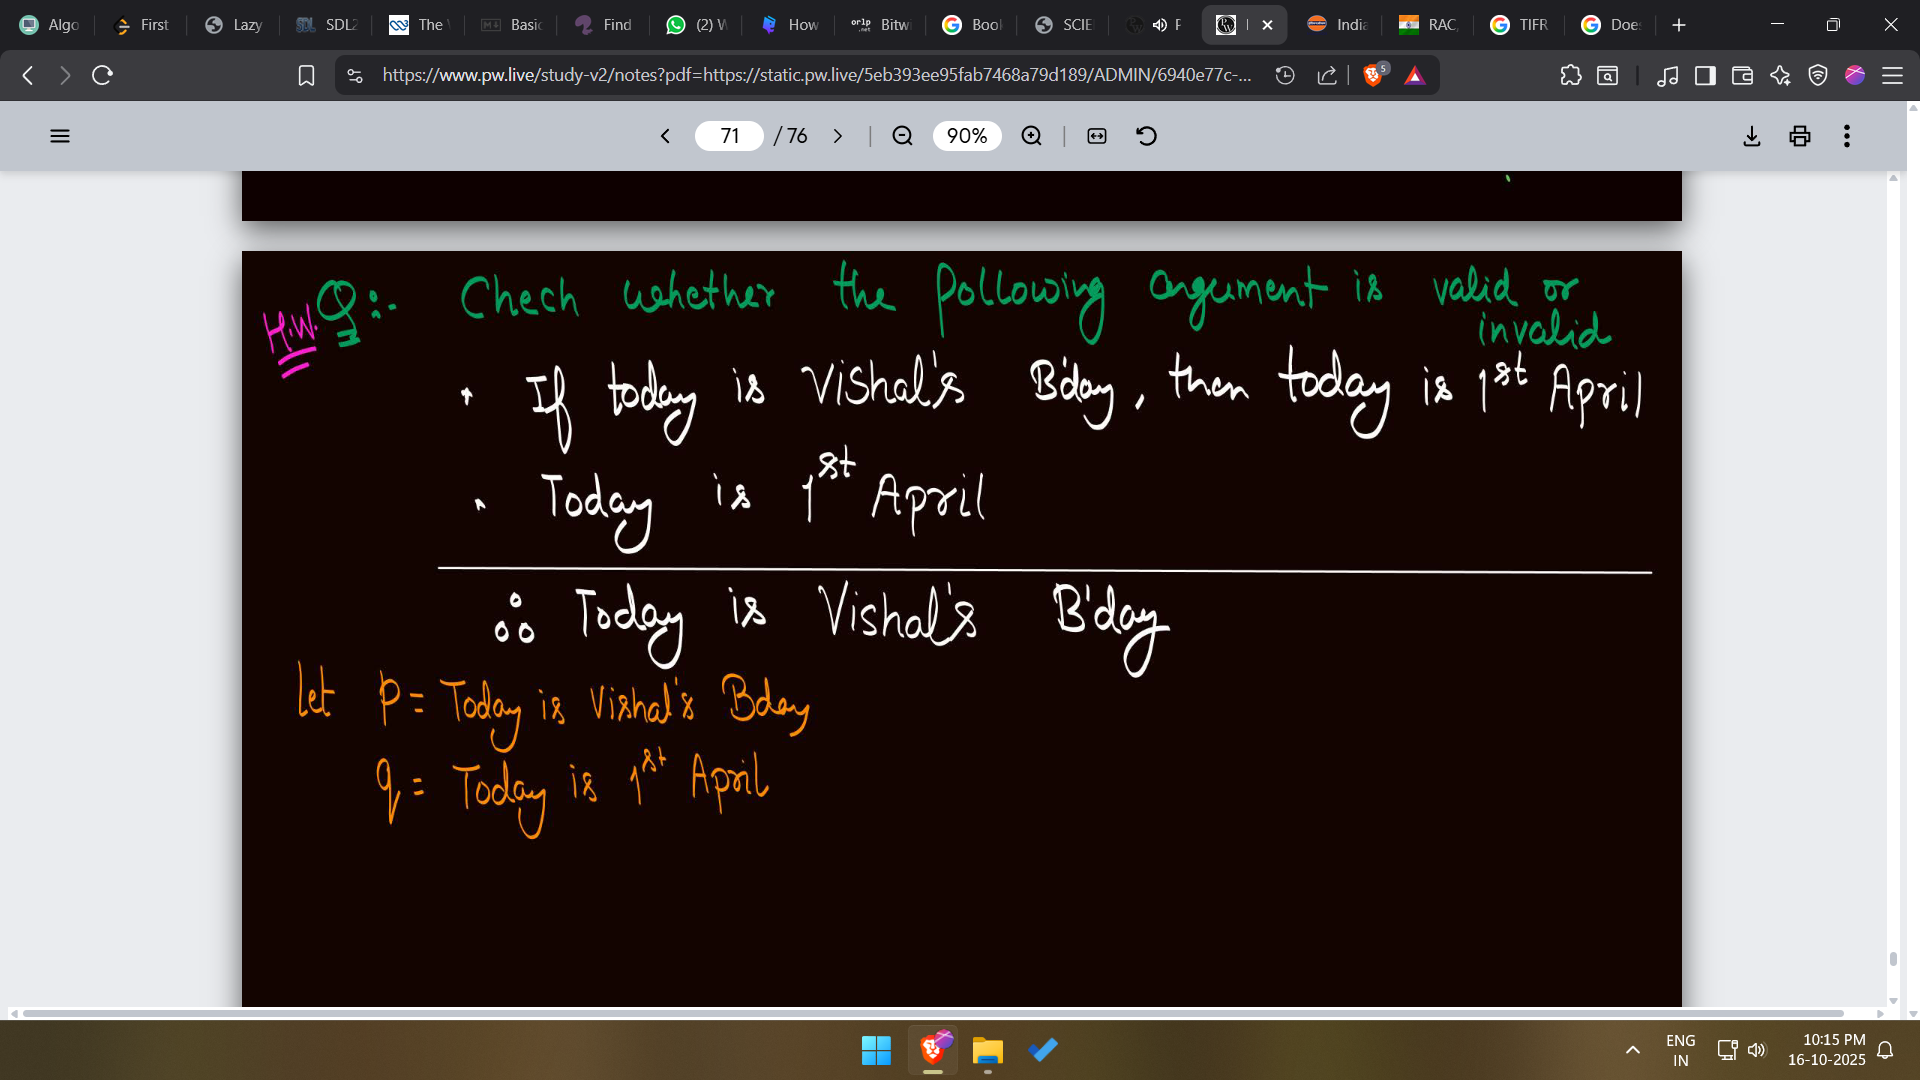 Algo First Lazy SDL2 The Basic Find (2) W How orlp .net Bitwi Book SCIE India RAC, TIFR Does
https://www.pw.live/study-v2/notes?pdf=https://static.pw.live/5eb393ee95fab7468a79d189/ADMIN/6940e77c-... 5
71 / 76 90%
H.W. Q:- Chech whether the following argument is valid or
invalid
• If today is Vishal's B'day, then today is 1st April
• Today is 1st April
∴ Today is Vishal's B'day
let p = Today is Vishal's Bday
q = Today is 1st April
ENG 10:15 PM
IN 16-10-2025